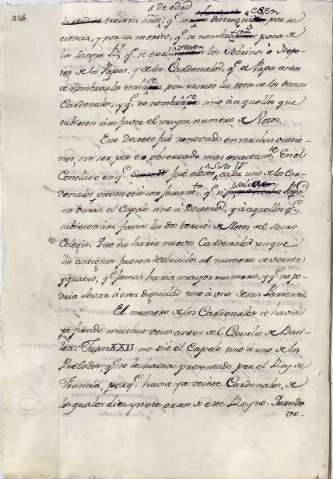 de edad
treinta años; q.e se distinguiesen por su
ciencia, y por su merito; q.e se nombrasen pocos de
q.e se los Sobrinos o Nepo-
tes de los Papas, y de los Cardenales, q.e el Papa antes
de nombrarlos tomase por escrito los votos de los demas
Cardenales, y q.e no nombrase sino a aquellos que
tubiesen a su favor el mayor numero de Votos.
Este Decreto fue renovado en muchas ocasio-
nes, sin ser por eso observado mas exactam.te En el
Conclave en q.e fue electo Sixto IV cada uno de los Car-
denales prometieron
no daria el Capelo sino a Doctores, y a aquellos q.e
tubiesen a su favor los dos tercios de Votos del Sacro
Colegio. Que no haria nuevos Cardenales sin que
los antiguos fuesen reducidos al numero de veinte
y quatro, q.e jamas haria mayor numero, y q.e no po-
dria elevar a esta dignidad sino a uno de sus Parientes.
El numero de los Cardenales se havia
ya fixado muchas veces antes del Concilio de Basi-
lea. Juan XXII no dio el Capelo sino a uno de los
Prelados, q.e le havia presentado por el Rey de
Francia, porq.e havia ya veinte Cardenales, de
los quales diez y siete eran de este Reyno. Quando
Ur-